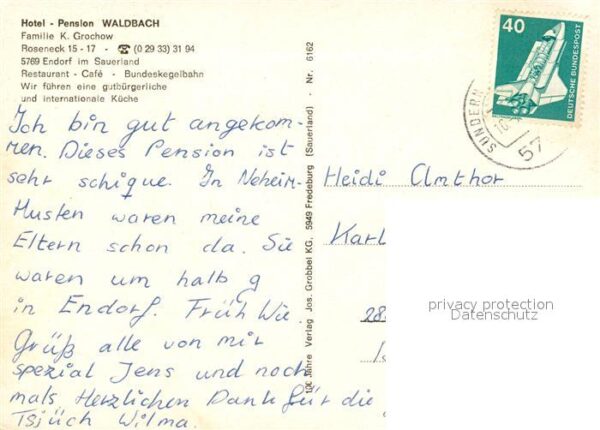 Hotel - Pension WALDBACH
Familie K. Grochow
Roseneck 15 - 17 - ☎ (0 29 33) 31 94
5769 Endorf im Sauerland
Restaurant - Café - Bundeskegelbahn
Wir führen eine gutbürgerliche
und internationale Küche
Ich bin gut angekom-
men. Dieses Pension ist
sehr schique. In Neheim-
Husten waren meine
Eltern schon da. Sie
waren um halb 9
in Endorf. Früh Wie
Grüß alle von mir
spezial Jens und noch
mals Herzlichen Dank für die
Tsjüch Wilma.
Jahre Verlag Jos. Grobbel KG, 5949 Fredeburg (Sauerland) - Nr. 6162
40
DEUTSCHE BUNDESPOST
SUNDERN
57
Heidi Amthor
Karl
28
privacy protection
Datenschutz